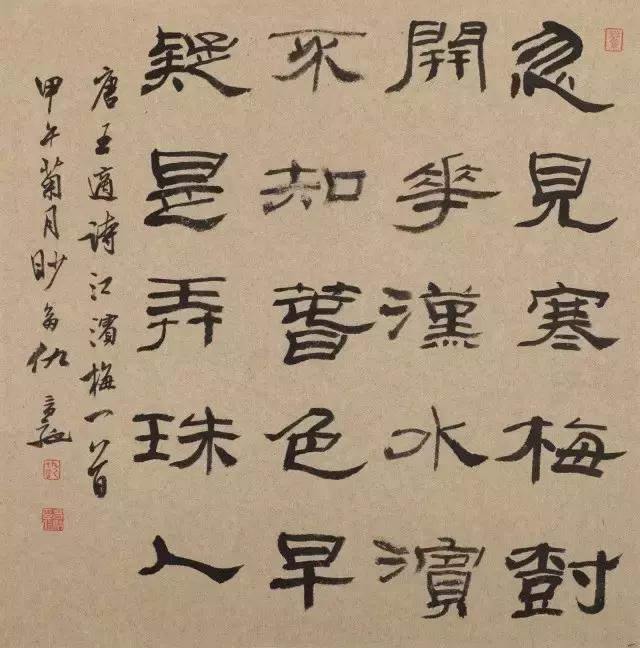 忽見寒梅尌
開華漢水濱
不知萅色早
疑是弄珠人
唐王適詩江濱梅一首
甲午菊月眇翁仇高馳